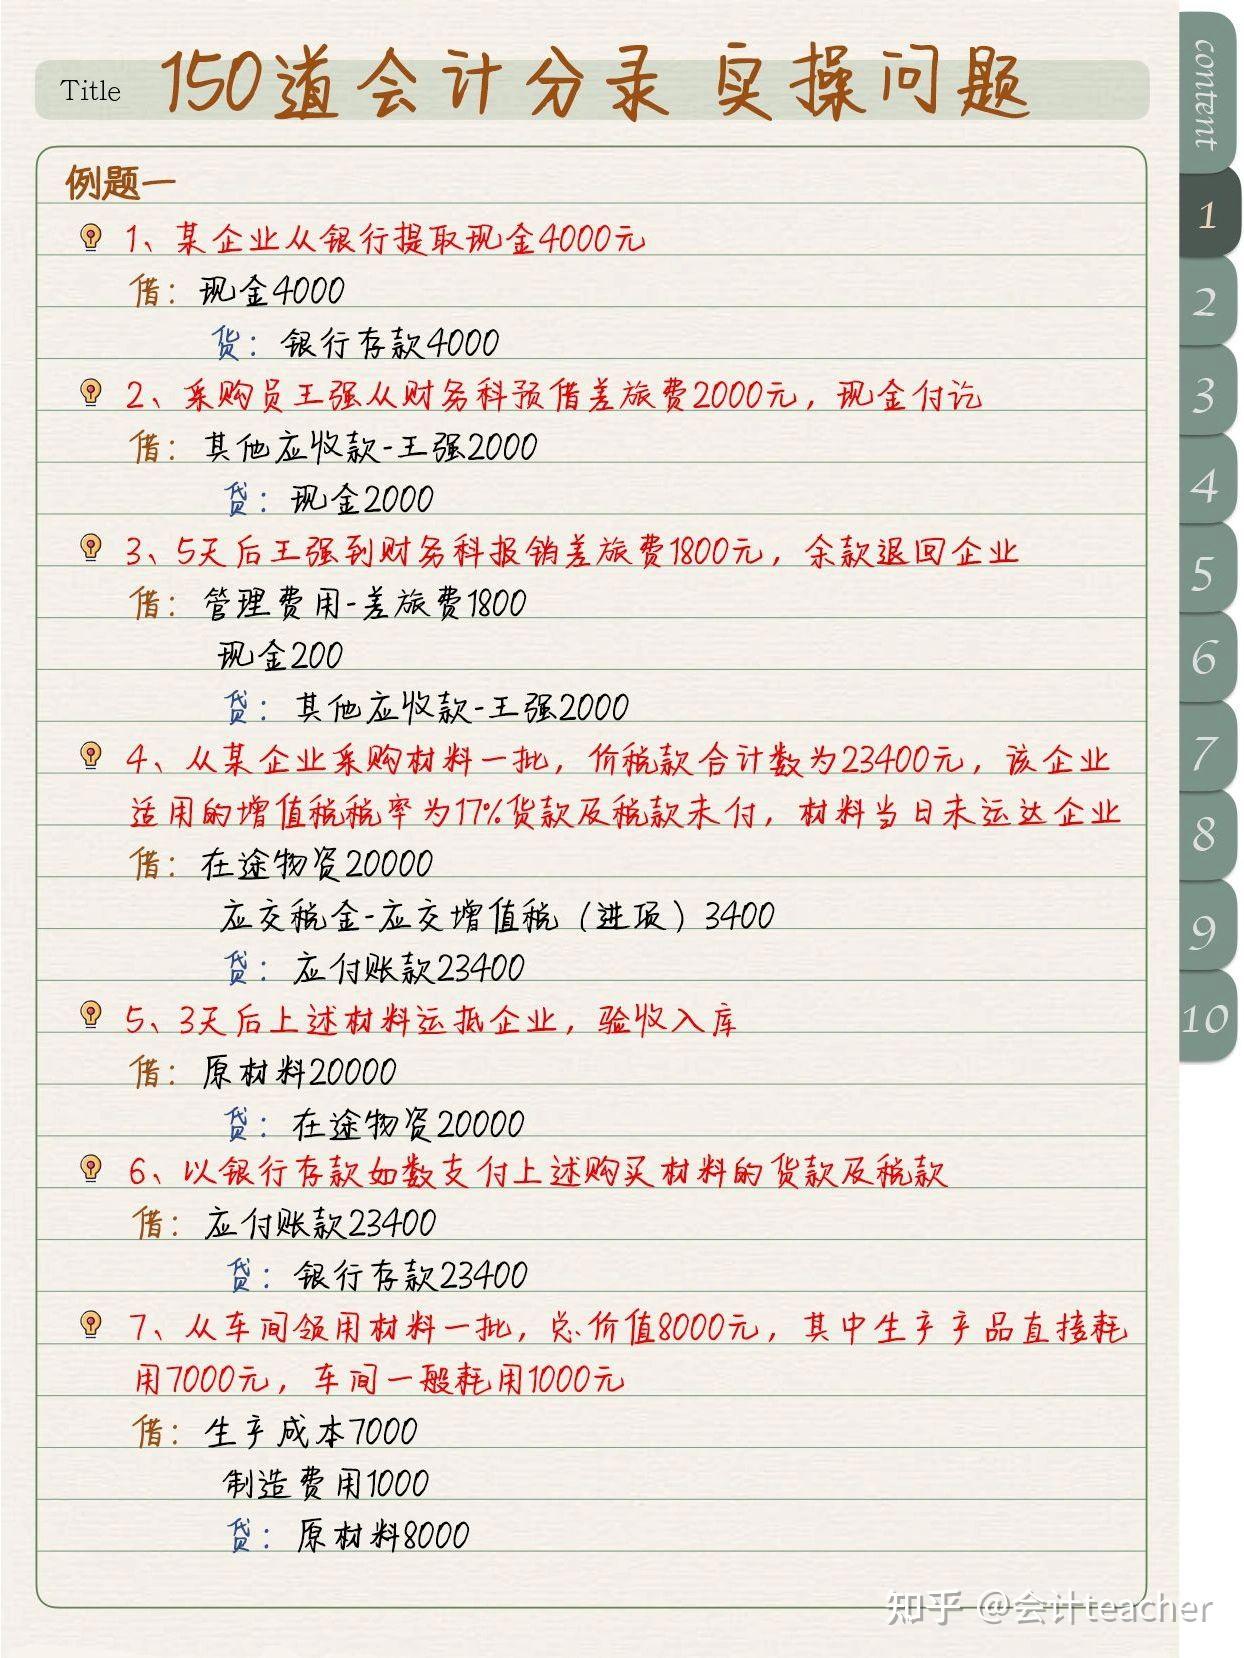 Title 150道会计分录 实操问题
content
例题一
1、某企业从银行提取现金4000元
借：现金4000
货：银行存款4000
2、采购员王强从财务科预借差旅费2000元，现金付讫
借：其他应收款-王强2000
贷：现金2000
3、5天后王强到财务科报销差旅费1800元，余款退回企业
借：管理费用-差旅费1800
现金200
贷：其他应收款-王强2000
4、从某企业采购材料一批，价税款合计数为23400元，该企业
适用的增值税税率为17%货款及税款未付，材料当日未运达企业
借：在途物资20000
应交税金-应交增值税（进项）3400
贷：应付账款23400
5、3天后上述材料运抵企业，验收入库
借：原材料20000
贷：在途物资20000
6、以银行存款如数支付上述购买材料的货款及税款
借：应付账款23400
贷：银行存款23400
7、从车间领用材料一批，总价值8000元，其中生产产品直接耗
用7000元，车间一般耗用1000元
借：生产成本7000
制造费用1000
贷：原材料8000
1
2
3
4
5
6
7
8
9
10
知乎 @会计teacher